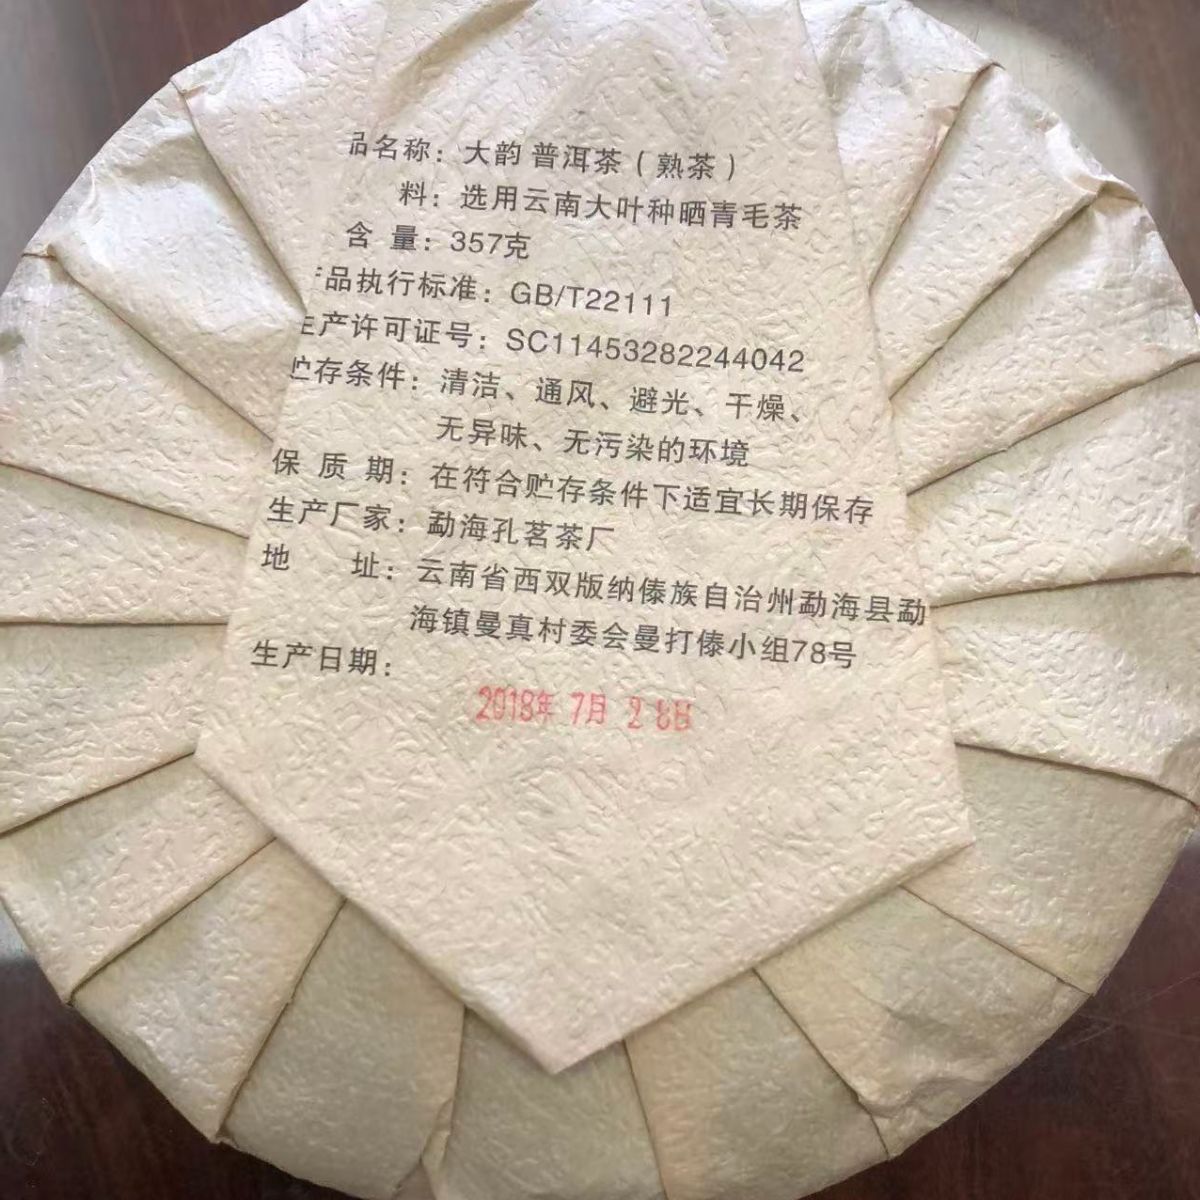 品名称：大韵 普洱茶（熟茶）
料：选用云南大叶种晒青毛茶
含 量：357克
产品执行标准：GB/T22111
生产许可证号：SC11453282244042
贮存条件：清洁、通风、避光、干燥、
无异味、无污染的环境
保 质 期：在符合贮存条件下适宜长期保存
生产厂家：勐海孔茗茶厂
地 址：云南省西双版纳傣族自治州勐海县勐
海镇曼真村委会曼打傣小组78号
生产日期：
2018年 7月 28日